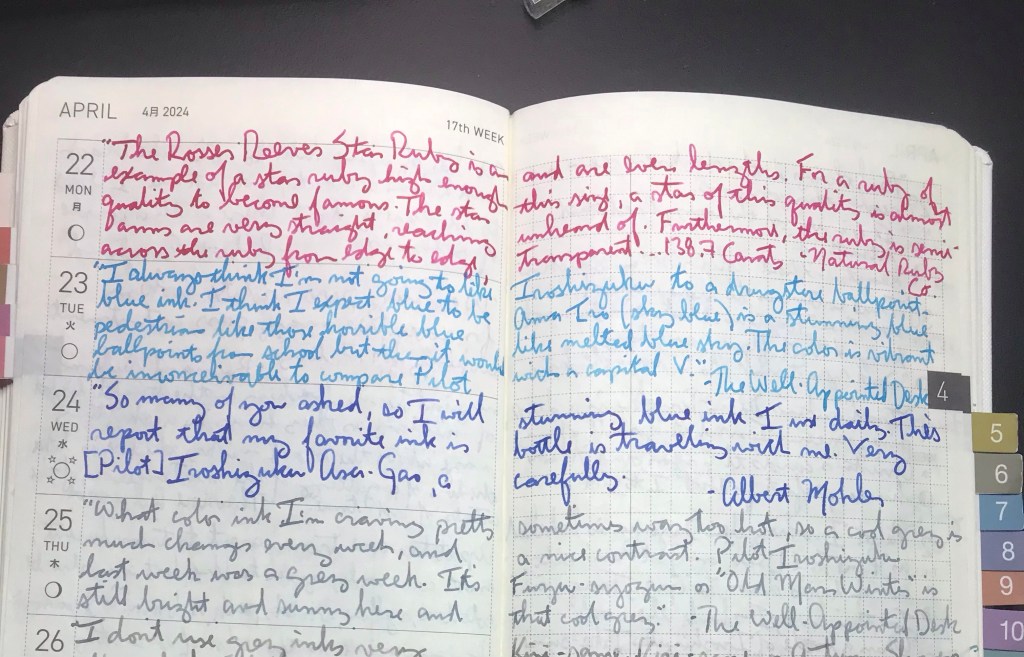 APRIL 4月 2024
17th WEEK
22
MON
月
"The Rosser Reeves Star Ruby is an
example of a star ruby high enough
quality to become famous. The star
arms are very straight, reaching
across the ruby from edge to edge,
and are even lengths. For a ruby of
this size, a star of this quality is almost
unheard of. Furthermore, the ruby is semi-
transparent... 138.7 Carats - Natural Ruby
Co.
23
TUE
火
"I always think I'm not going to like
blue ink. I think I expect blue to be
pedestrian like those horrible blue
ballpoints from school but then it would
be inconceivable to compare Pilot
Iroshizuku to a drugstore ballpoint.
Ama Iro (sky blue) is a stunning blue
like melted blue sky. The color is vibrant
with a capital V."
-The Well-Appointed Desk
24
WED
水
"So many of you asked, so I will
report that my favorite ink is
[Pilot] Iroshizuku Asa-Gao, a
stunning blue ink I use daily. This
bottle is traveling with me. Very
carefully.
- Albert Mohler
25
THU
木
"What color ink I'm craving pretty
much changes every week, and
last week was a grey week. It's
still bright and sunny here and
sometimes way too hot, so a cool grey is
a nice contrast. Pilot Iroshizuku
Fuyu-syogun or "Old Man Winter" is
that cool grey." - The Well-Appointed Desk
26
"I don't use grey inks very
4
5
6
7
8
9
10